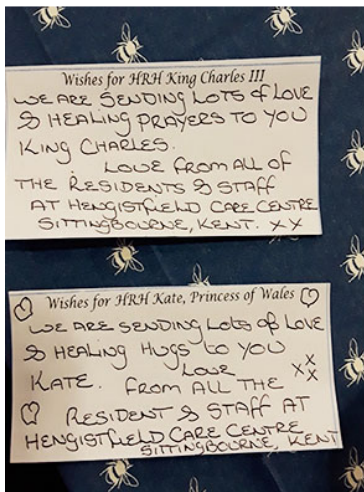 Wishes for HRH King Charles III
WE ARE SENDING LOTS of LOVE
& HEALING PRAYERS TO YOU
KING CHARLES.
LOVE FROM ALL OF
THE RESIDENTS & STAFF
AT HENGISTFIELD CARE CENTRE
SITTINGBOURNE, KENT. XX
Wishes for HRH Kate, Princess of Wales
WE ARE SENDING LOTS of LOVE
& HEALING HUGS TO YOU
KATE. LOVE XXX
FROM ALL THE
RESIDENT & STAFF AT
HENGISTFIELD CARE CENTRE
SITTINGBOURNE, KENT